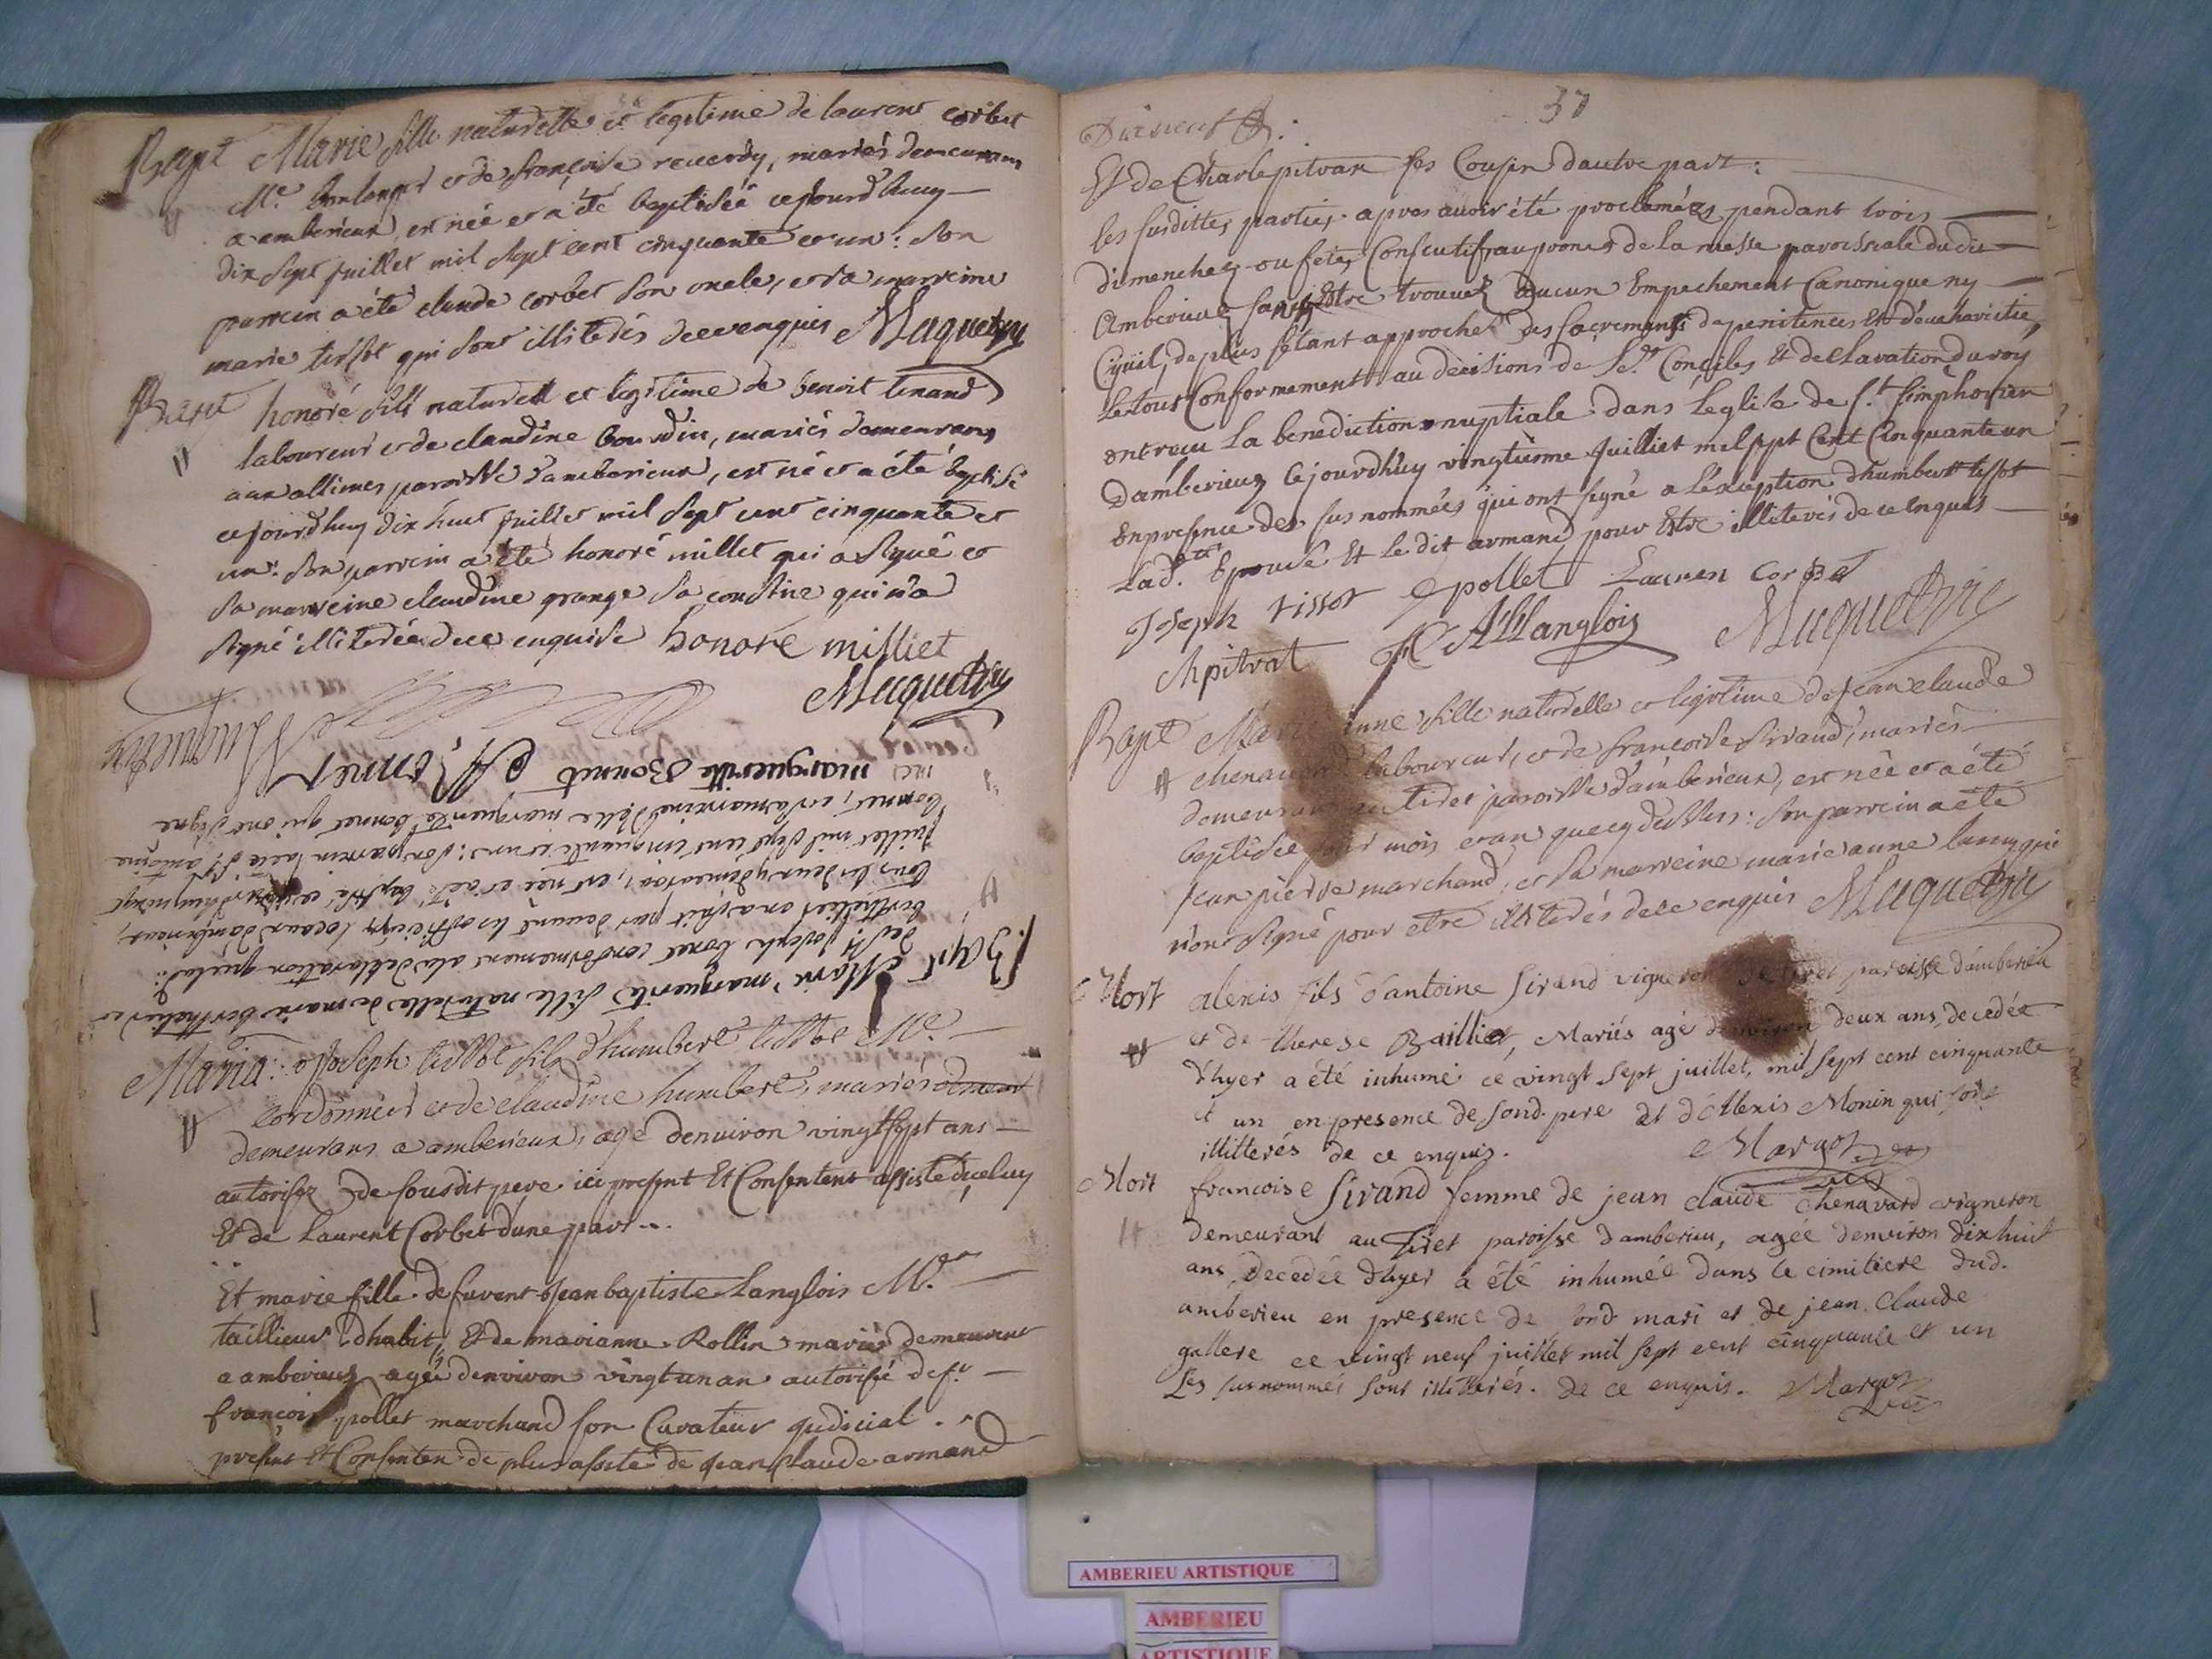 Bapt Marie fille naturelle et legitime de laurent corbet
Me. boulanger et de françoise reverdy, mariés demeurans
a amberieux, est née et a été baptisée cejourd'huy
dix sept juillet mil sept cent cinquante et un : son
parrein a été claude corbet son oncle, et sa marreine
marie tissot qui sont illiterés de ce enquis Muguetty
Bapt honoré fils naturell et legitime de benoit tenand
laboureur et de claudine bourdin, mariés demeurans
aux allimes paroisse d'amberieux, est né et a été baptisé
cejourdhuy dix huit juillet mil sept cent cinquante et
un : son parrein a été honoré millet qui a signé et
sa marreine claudine grange sa cousine qui n'a
signé illiterée de ce enquise honore milliet
Muguetty
Bapt Marie marguerite fille naturelle de marie berthelier et
de Sr joseph bonet conformement a la declaration que lad:
berthelier en a fait par devant les officiers locaux d'amberieux,
tous les deux y demeurans, est née et a été baptisé cejourdhuy
juillet mil sept cent cinquante et un : son parrein a été Sr antoine
bonnet, et sa marreine Dlle marguerite bonnet qui ont signé
marguerite Bonnet A, Bonnet
Maria: Joseph tissot fils d'humbert tissot Me.
cordonnier et de claudine humbert, mariés
demeurans a amberieux, agé denviron vingt sept ans
autorisez de sousdit pere ici present Et Consentent assisté diceluy
Et de Laurent Corbet dune part...
Et marie fille de fuvent Jean baptiste Langlois Me.
taillieur dhabit, Et de marianne Rollin mariés demeurent
a amberieux agée denviron vingt un an autorisé de sr.
françois pollet marchand son Curateur judicial
present Et Consenten de plus assité de jean Claude armand
37
Et de Charle pitvar ses Cousin dautre part :
les susdittes parties apres avoir été proclamées pendant trois
dimenchez ou fetes Consecutifs au prones de la messe paroissiale dudit
Amberieux sans Estre trouvez aucun Empechement Canonique ny
Ciyuil, de plus sétant approchez des sacrements de penitences Et d'eucharistie,
Le tous Conformement au decisions de Sts. Conciles Et declaration du roy
ont recu la benediction nuptiale dans Leglise de St. simphorien
Damberieux Cejourdhuy vingtieme juilliet mil sept Cent Cinquante un
En presence des sus nommées qui ont signé a lexception dhumbert tissot
Lad.te Epouse Et le dit armand pour Estre illiterés de ce enquis
Joseph tissot pollet Lauren Corbet
Chpitvat Langlois Muguetty
Bapt Marie anne fille naturelle et legitime de jean claude
chenavard laboureur, et de francoise sirand, mariés
demeurans au tiret paroisse d'amberieux, est née et a été
baptisée jour mois et an que cy dessus : son parrein a été
jean pierre marchand, et sa marreine marie anne lamy qui
n'ont signé pour etre illiterés de ce enquis Muguetty
Mort alexis fils d'antoine sirand vigneron de tiret paroisse d'amberieu
et de therese Baillier, Mariés agé denviron deux ans, decedée
d'hyer a été inhumé ce vingt sept juillet, mil sept cent cinquante
et un en presence de sond. pere et d'Alexis Monin qui sont
illitterés de ce enquis. Margot
Mort francoise sirand femme de jean claude chenavard vigneron
demeurant au Tiret paroisse d'amberieu, agée denviron dix huit
ans, decedée d'hyer a été inhumée dans le cimitiere dud.
amberieu en presence de sond. mari et de jean Claude
gallere ce vingt neuf juillet mil sept cent cinquante et un
Les susnommés sont illitterés. de ce enquis. Margot
AMBERIEU ARTISTIQUE
AMBERIEU
ARTISTIQUE